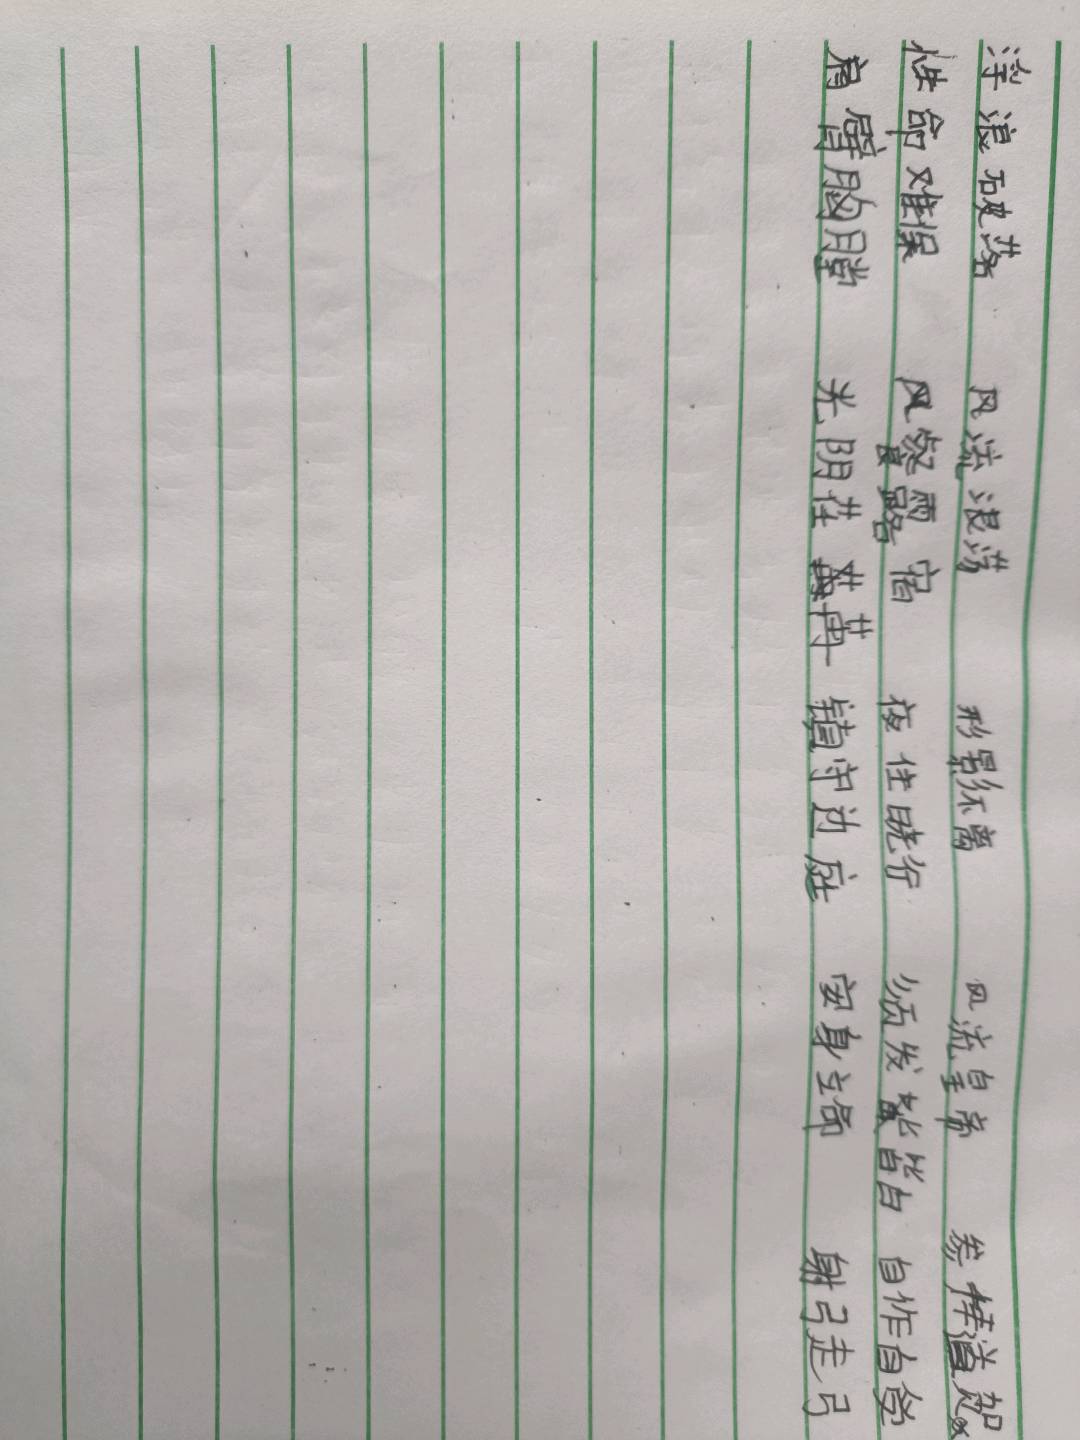 浮浪破落 风流浪荡 形影不离 风流皇帝 参拜道贺
性命难保 风餐露宿 夜住晓行 须发皆白 自作自受
肩臂胸膛 光阴荏苒 镇守边庭 安身立命 射弓走弓